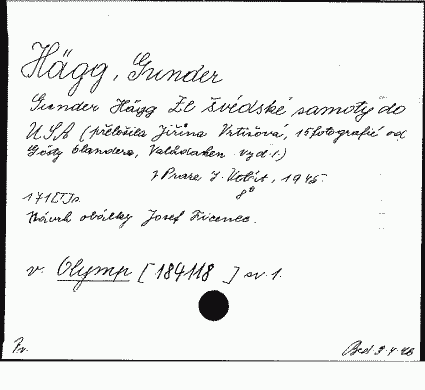 Hägg, Gunder
Gunder Hägg Ze švédské samoty do
USA (přeložila Jiřina Vrtišová, 15 fotografií od
Gösty blandera, Valådalen vyd. 1.)
v Praze J. 1946.
8°
171 [I] s.
Návrh obálky Josef Ficenec.
v. Olymp [184118 ] sv. 1.
Pv.